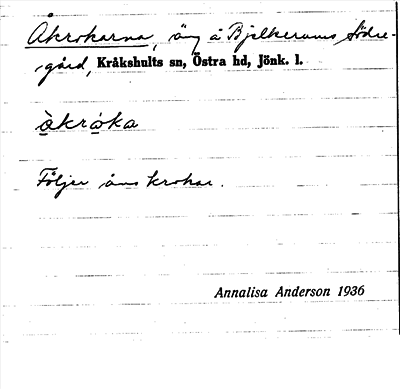 Åkrokarna, äng å Bjälkerums Södre-
gård, Kråkshults sn, Östra hd, Jönk. l.
åkrɷka
Följer åns krokar.
Annalisa Anderson 1936